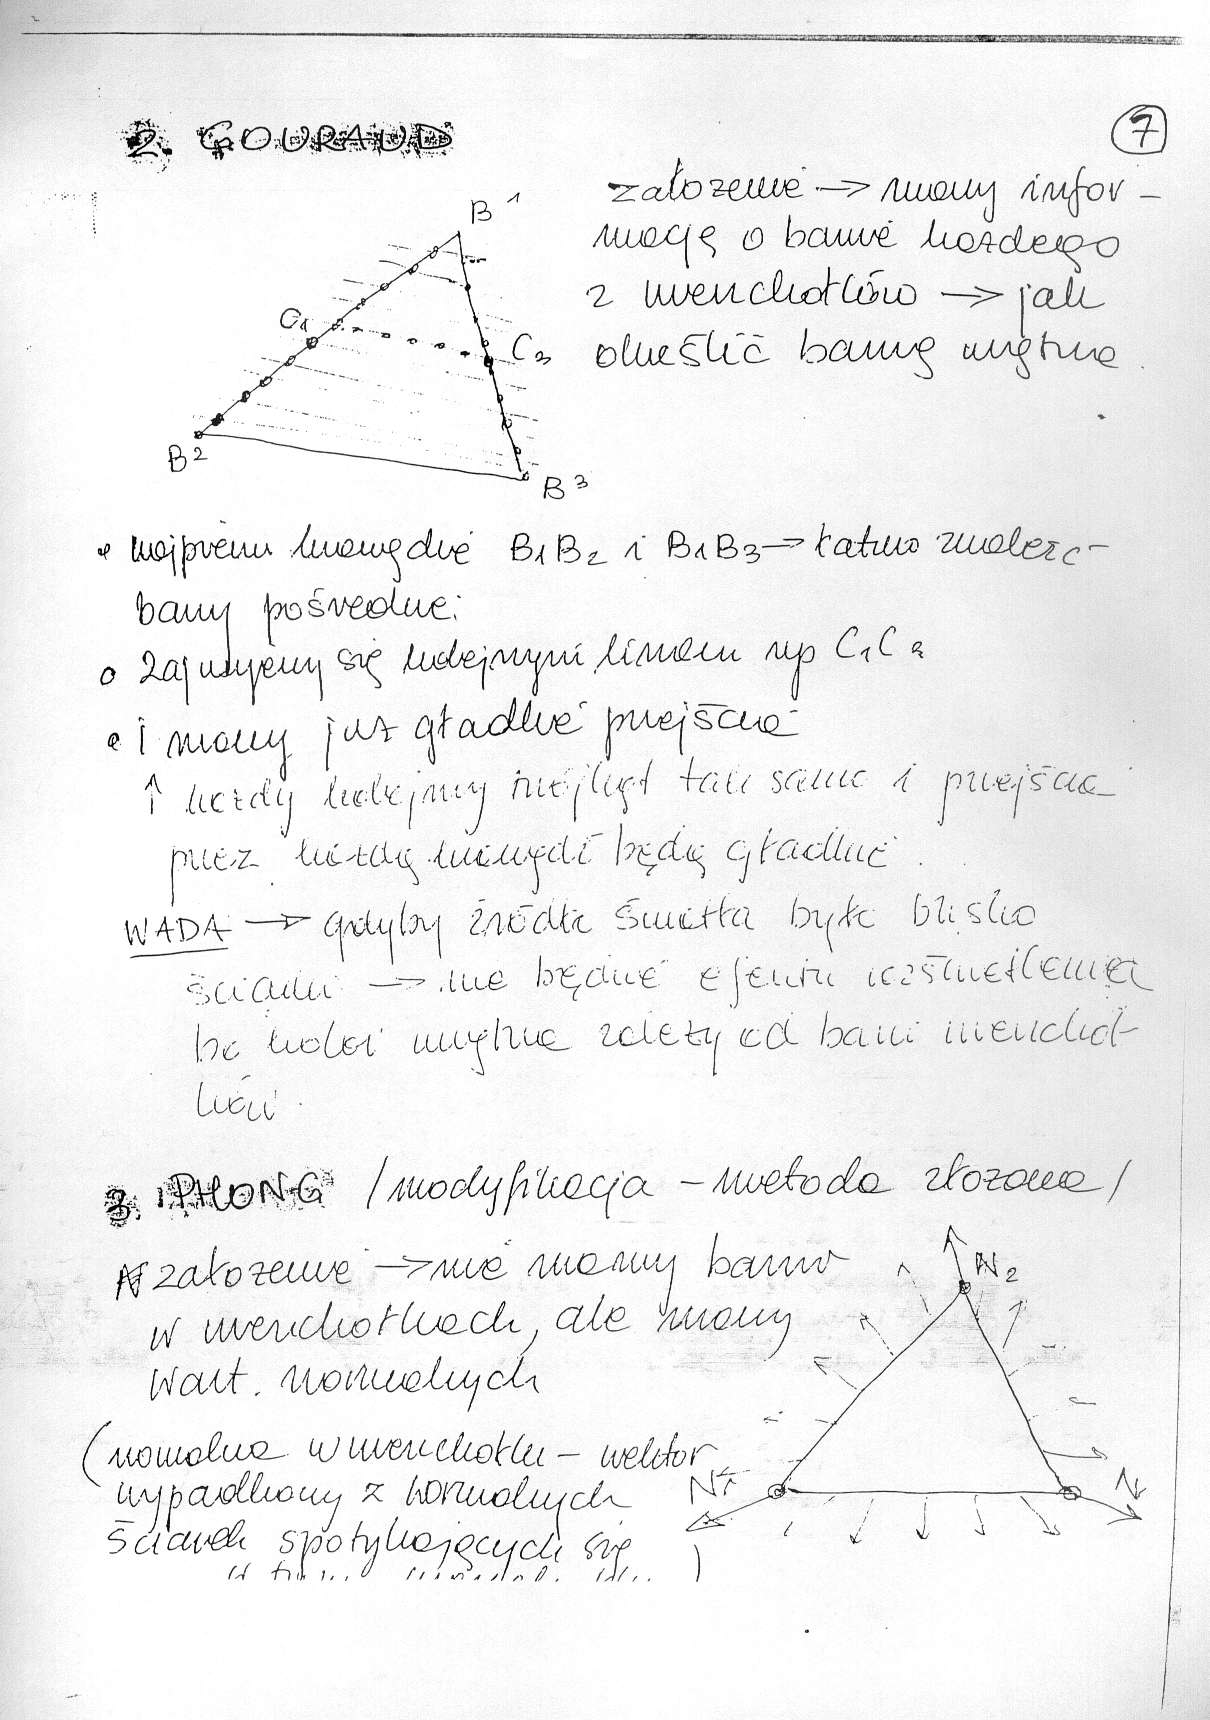 7
2. GOURAUD
założenie → mamy infor-
mację o barwie każdego
z wierzchołków → jak
określić barwę wnętrza
B1
C1
C3
B2
B3
• najpierw krawędzie B1B2 i B1B3 → łatwo znaleźć
barwy pośrednie
• zajmujemy się kolejnymi liniami np C1C3
• i mamy już gładkie przejścia
↑ każdy kolejny trójkąt tak samo i przejścia
przez każdą krawędź będą gładkie.
WADA → gdyby źródło światła było blisko
ścianki → nie będzie efektu rozświetlenia
bo kolor wnętrza zależy od barw wierzchoł-
ków.
3. PHONG /modyfikacja - metoda złożona/
założenie → nie mamy barw
w wierzchołkach, ale mamy
wart. normalnych
N2
(normalna w wierzchołku - wektor
wypadkowy z normalnych
ścianek spotykających się
)
N1
N